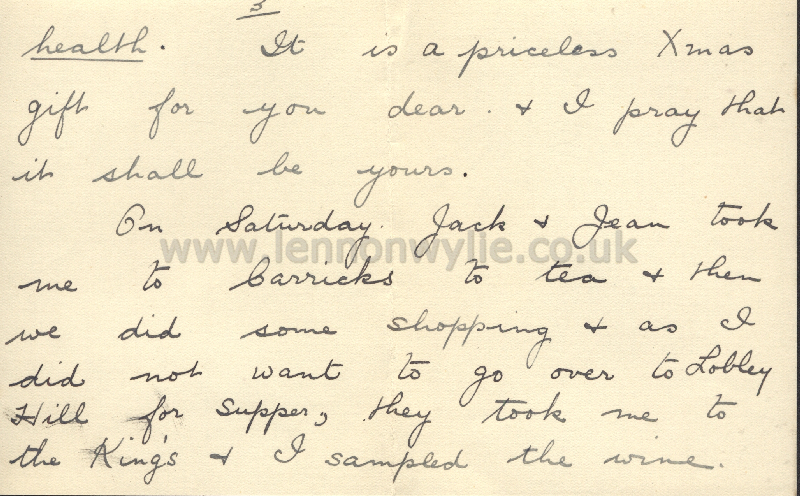 3
health. It is a priceless Xmas
gift for you dear. & I pray that
it shall be yours.
On Saturday. Jack & Jean took
www.lennonwylie.co.uk
me to Carricks to tea & then
we did some shopping & as I
did not want to go over to Lobley
Hill for supper, they took me to
the King's & I sampled the wine.